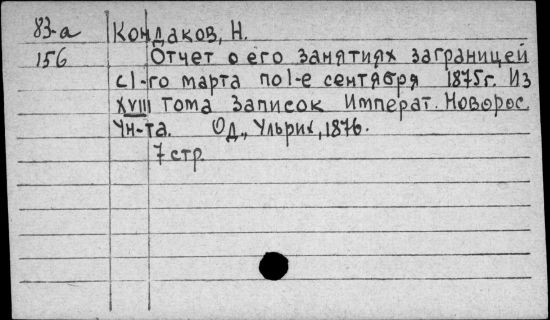 83-а Кондаков, Н.
156 Отчет о его занятиях заграницей
с 1-го марта по 1-е сентября 1875 г. Из
XVIII тома Записок Императ. Новорос.
Ун-та. Од., Ульрих, 1876.
7 стр.